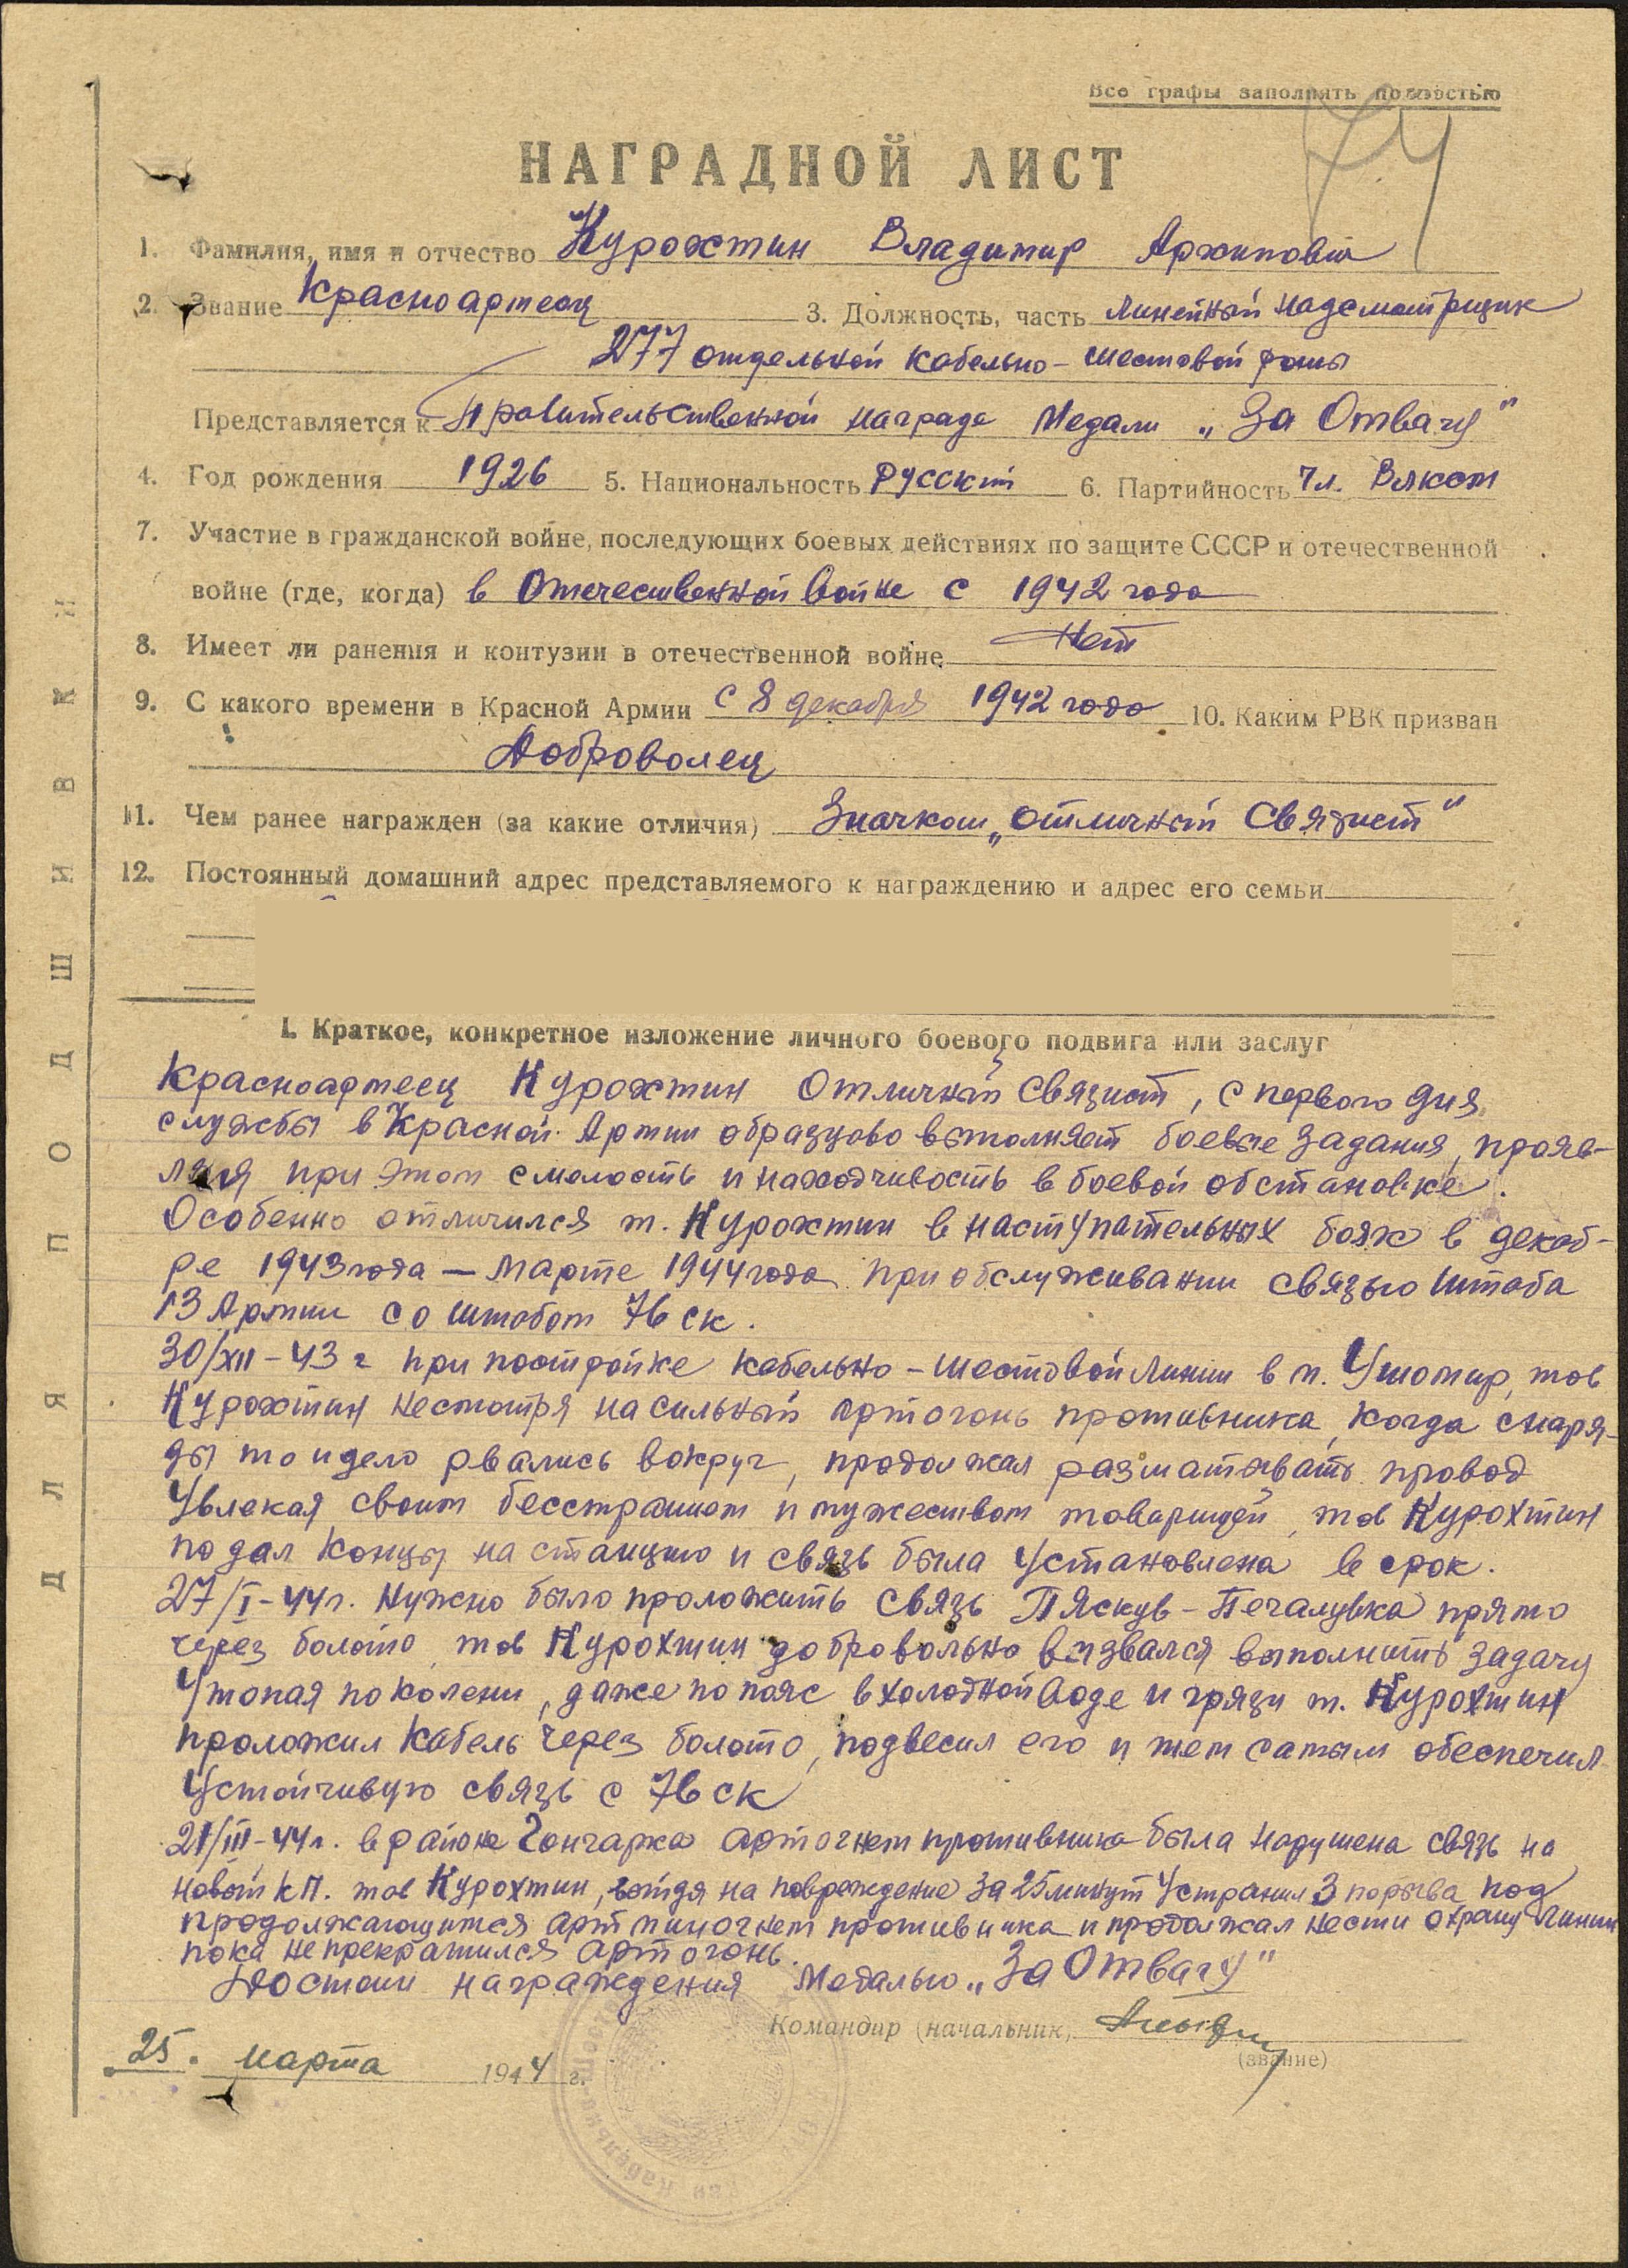 Все графы заполнять полностью
74
НАГРАДНОЙ ЛИСТ
1. Фамилия, имя и отчество Курохтин Владимир Архипович
2. Звание Красноармеец 3. Должность, часть Линейный надсмотрщик
277 отдельной Кабельно-шестовой роты
Представляется к Правительственной награде Медали „За Отвагу"
4. Год рождения 1926 5. Национальность Русский 6. Партийность Чл. ВЛКСМ
7. Участие в гражданской войне, последующих боевых действиях по защите СССР и отечественной
войне (где, когда) в Отечественной войне с 1942 года
8. Имеет ли ранения и контузии в отечественной войне Нет
9. С какого времени в Красной Армии с 8 декабря 1942 года 10. Каким РВК призван
Доброволец
11. Чем ранее награжден (за какие отличия) Значком „Отличный Связист"
12. Постоянный домашний адрес представляемого к награждению и адрес его семьи
I. Краткое, конкретное изложение личного боевого подвига или заслуг
Красноармеец Курохтин Отличный Связист, с первого дня
службы в Красной Армии образцово выполняет боевые задания, прояв-
ляя при этом смелость и находчивость в боевой обстановке.
Особенно отличился т. Курохтин в наступательных боях в декаб-
ре 1943 года — Марте 1944 года при обслуживании связью штаба
13 Армии со штабом 76 ск.
30/XII-43 г при постройке кабельно-шестовой линии в м. Ушомир, тов
Курохтин несмотря на сильный артогонь противника, когда снаря-
ды то и дело рвались вокруг, продолжал разматывать провод
Увлекая своим бесстрашием и мужеством товарищей, тов Курохтин
подал концы на станцию и связь была установлена в срок.
27/I-44г. Нужно было проложить связь Пяскув-Печалувка прямо
через болото, тов Курохтин добровольно вызвался выполнить задачу
Утопая по колени, даже по пояс в холодной воде и грязи т. Курохтин
проложил кабель через болото, подвесил его и тем самым обеспечил
Устойчивую связь с 76 ск
21/III-44г. в районе Гончарка артогнем противника была нарушена связь на
новый КП. тов Курохтин, выйдя на повреждение за 25 минут Устранил 3 порыва под
продолжающимся арт миногнем противника и продолжал нести охрану линии
пока не прекратился артогонь.
Достоин награждения Медалью „За Отвагу"
Командир (начальник)
(звание)
25. марта 1944 г.
ДЛЯ ПОДШИВКИ